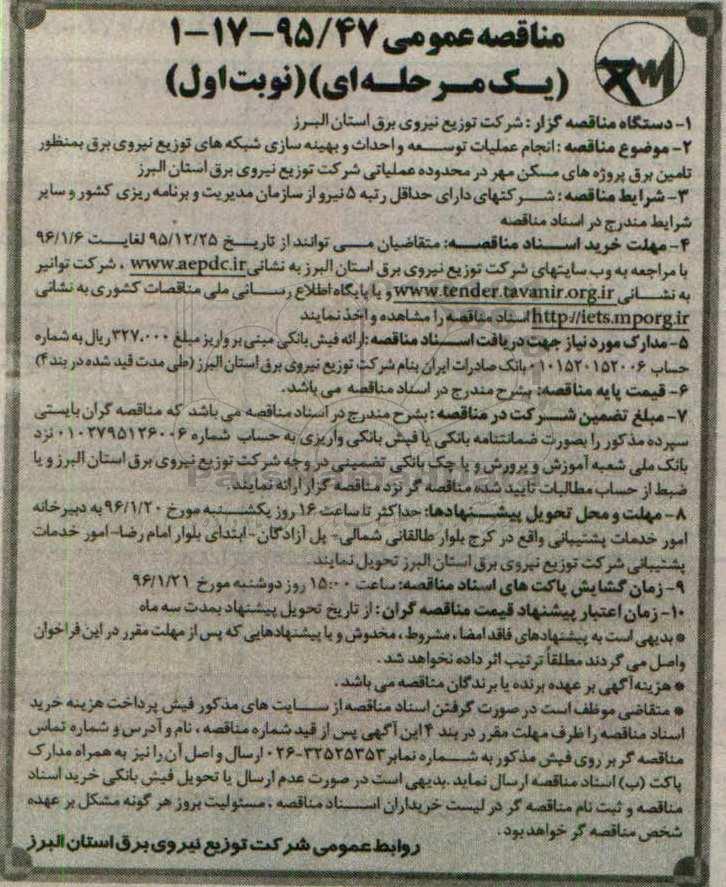 مناقصه عمومی ۹۵/۴۷-۱۷-۱
(یک مرحله ای)(نوبت اول)
۱- دستگاه مناقصه گزار : شرکت توزیع نیروی برق استان البرز
۲- موضوع مناقصه : انجام عملیات توسعه و احداث و بهینه سازی شبکه های توزیع نیروی برق بمنظور
تامین برق پروژه های مسکن مهر در محدوده عملیاتی شرکت توزیع نیروی برق استان البرز
۳- شرایط مناقصه : شرکتهای دارای حداقل رتبه ۵ نیرو از سازمان مدیریت و برنامه ریزی کشور و سایر
شرایط مندرج در اسناد مناقصه
۴- مهلت خرید اسناد مناقصه: متقاضیان می توانند از تاریخ ۹۵/۱۲/۲۵ لغایت ۹۶/۱/۶
با مراجعه به وب سایتهای شرکت توزیع نیروی برق استان البرز به نشانی www.aepdc.ir ، شرکت توانیر
به نشانی www.tender.tavanir.org.ir و یا پایگاه اطلاع رسانی ملی مناقصات کشوری به نشانی
http://iets.mporg.ir اسناد مناقصه را مشاهده و اخذ نمایند
۵- مدارک مورد نیاز جهت دریافت اسناد مناقصه : ارائه فیش بانکی مبنی بر واریز مبلغ ۳۲۷،۰۰۰ ریال به شماره
حساب ۰۱۰۱۵۲۰۱۵۲۰۰۶ بانک صادرات ایران بنام شرکت توزیع نیروی برق استان البرز (طی مدت قید شده در بند ۴)
۶- قیمت پایه مناقصه: بشرح مندرج در اسناد مناقصه می باشد .
۷- مبلغ تضمین شرکت در مناقصه : بشرح مندرج در اسناد مناقصه می باشد که مناقصه گران بایستی
سپرده مذکور را بصورت ضمانتنامه بانکی یا فیش بانکی واریزی به حساب شماره ۰۱۰۲۷۹۵۱۲۶۰۰۶ نزد
بانک ملی شعبه آموزش و پرورش و یا چک بانکی تضمینی در وجه شرکت توزیع نیروی برق استان البرز و یا
ضبط از حساب مطالبات تایید شده مناقصه گر نزد مناقصه گزار ارائه نمایند.
۸- مهلت و محل تحویل پیشنهادها: حداکثر تا ساعت ۱۶ روز یکشنبه مورخ ۹۶/۱/۲۰ به دبیرخانه
امور خدمات پشتیبانی واقع در کرج بلوار طالقانی شمالی- پل آزادگان- ابتدای بلوار امام رضا- امور خدمات
پشتیبانی شرکت توزیع نیروی برق استان البرز تحویل نمایند
۹- زمان گشایش پاکت های اسناد مناقصه: ساعت ۱۵:۰۰ روز دوشنبه مورخ ۹۶/۱/۲۱
۱۰- زمان اعتبار پیشنهاد قیمت مناقصه گران : از تاریخ تحویل پیشنهاد بمدت سه ماه
* بدیهی است به پیشنهادهای فاقد امضا ، مشروط ، مخدوش و یا پیشنهادهایی که پس از مهلت مقرر در این فراخوان
واصل می گردند مطلقاً ترتیب اثر داده نخواهد شد .
* هزینه آگهی بر عهده برنده یا برندگان مناقصه می باشد .
* متقاضی موظف است در صورت گرفتن اسناد مناقصه از سایت های مذکور فیش پرداخت هزینه خرید
اسناد مناقصه را ظرف مهلت مقرر در بند ۴ این آگهی پس از قید شماره مناقصه ، نام و آدرس و شماره تماس
مناقصه گر بر روی فیش مذکور به شماره نمابر ۳۲۵۲۵۳۵۳-۰۲۶ ارسال و اصل آن را نیز به همراه مدارک
پاکت (ب) اسناد مناقصه ارسال نماید .بدیهی است در صورت عدم ارسال یا تحویل فیش بانکی خرید اسناد
مناقصه و ثبت نام مناقصه گر در لیست خریداران اسناد مناقصه ، مسئولیت بروز هر گونه مشکل بر عهده
شخص مناقصه گر خواهد بود .
روابط عمومی شرکت توزیع نیروی برق استان البرز